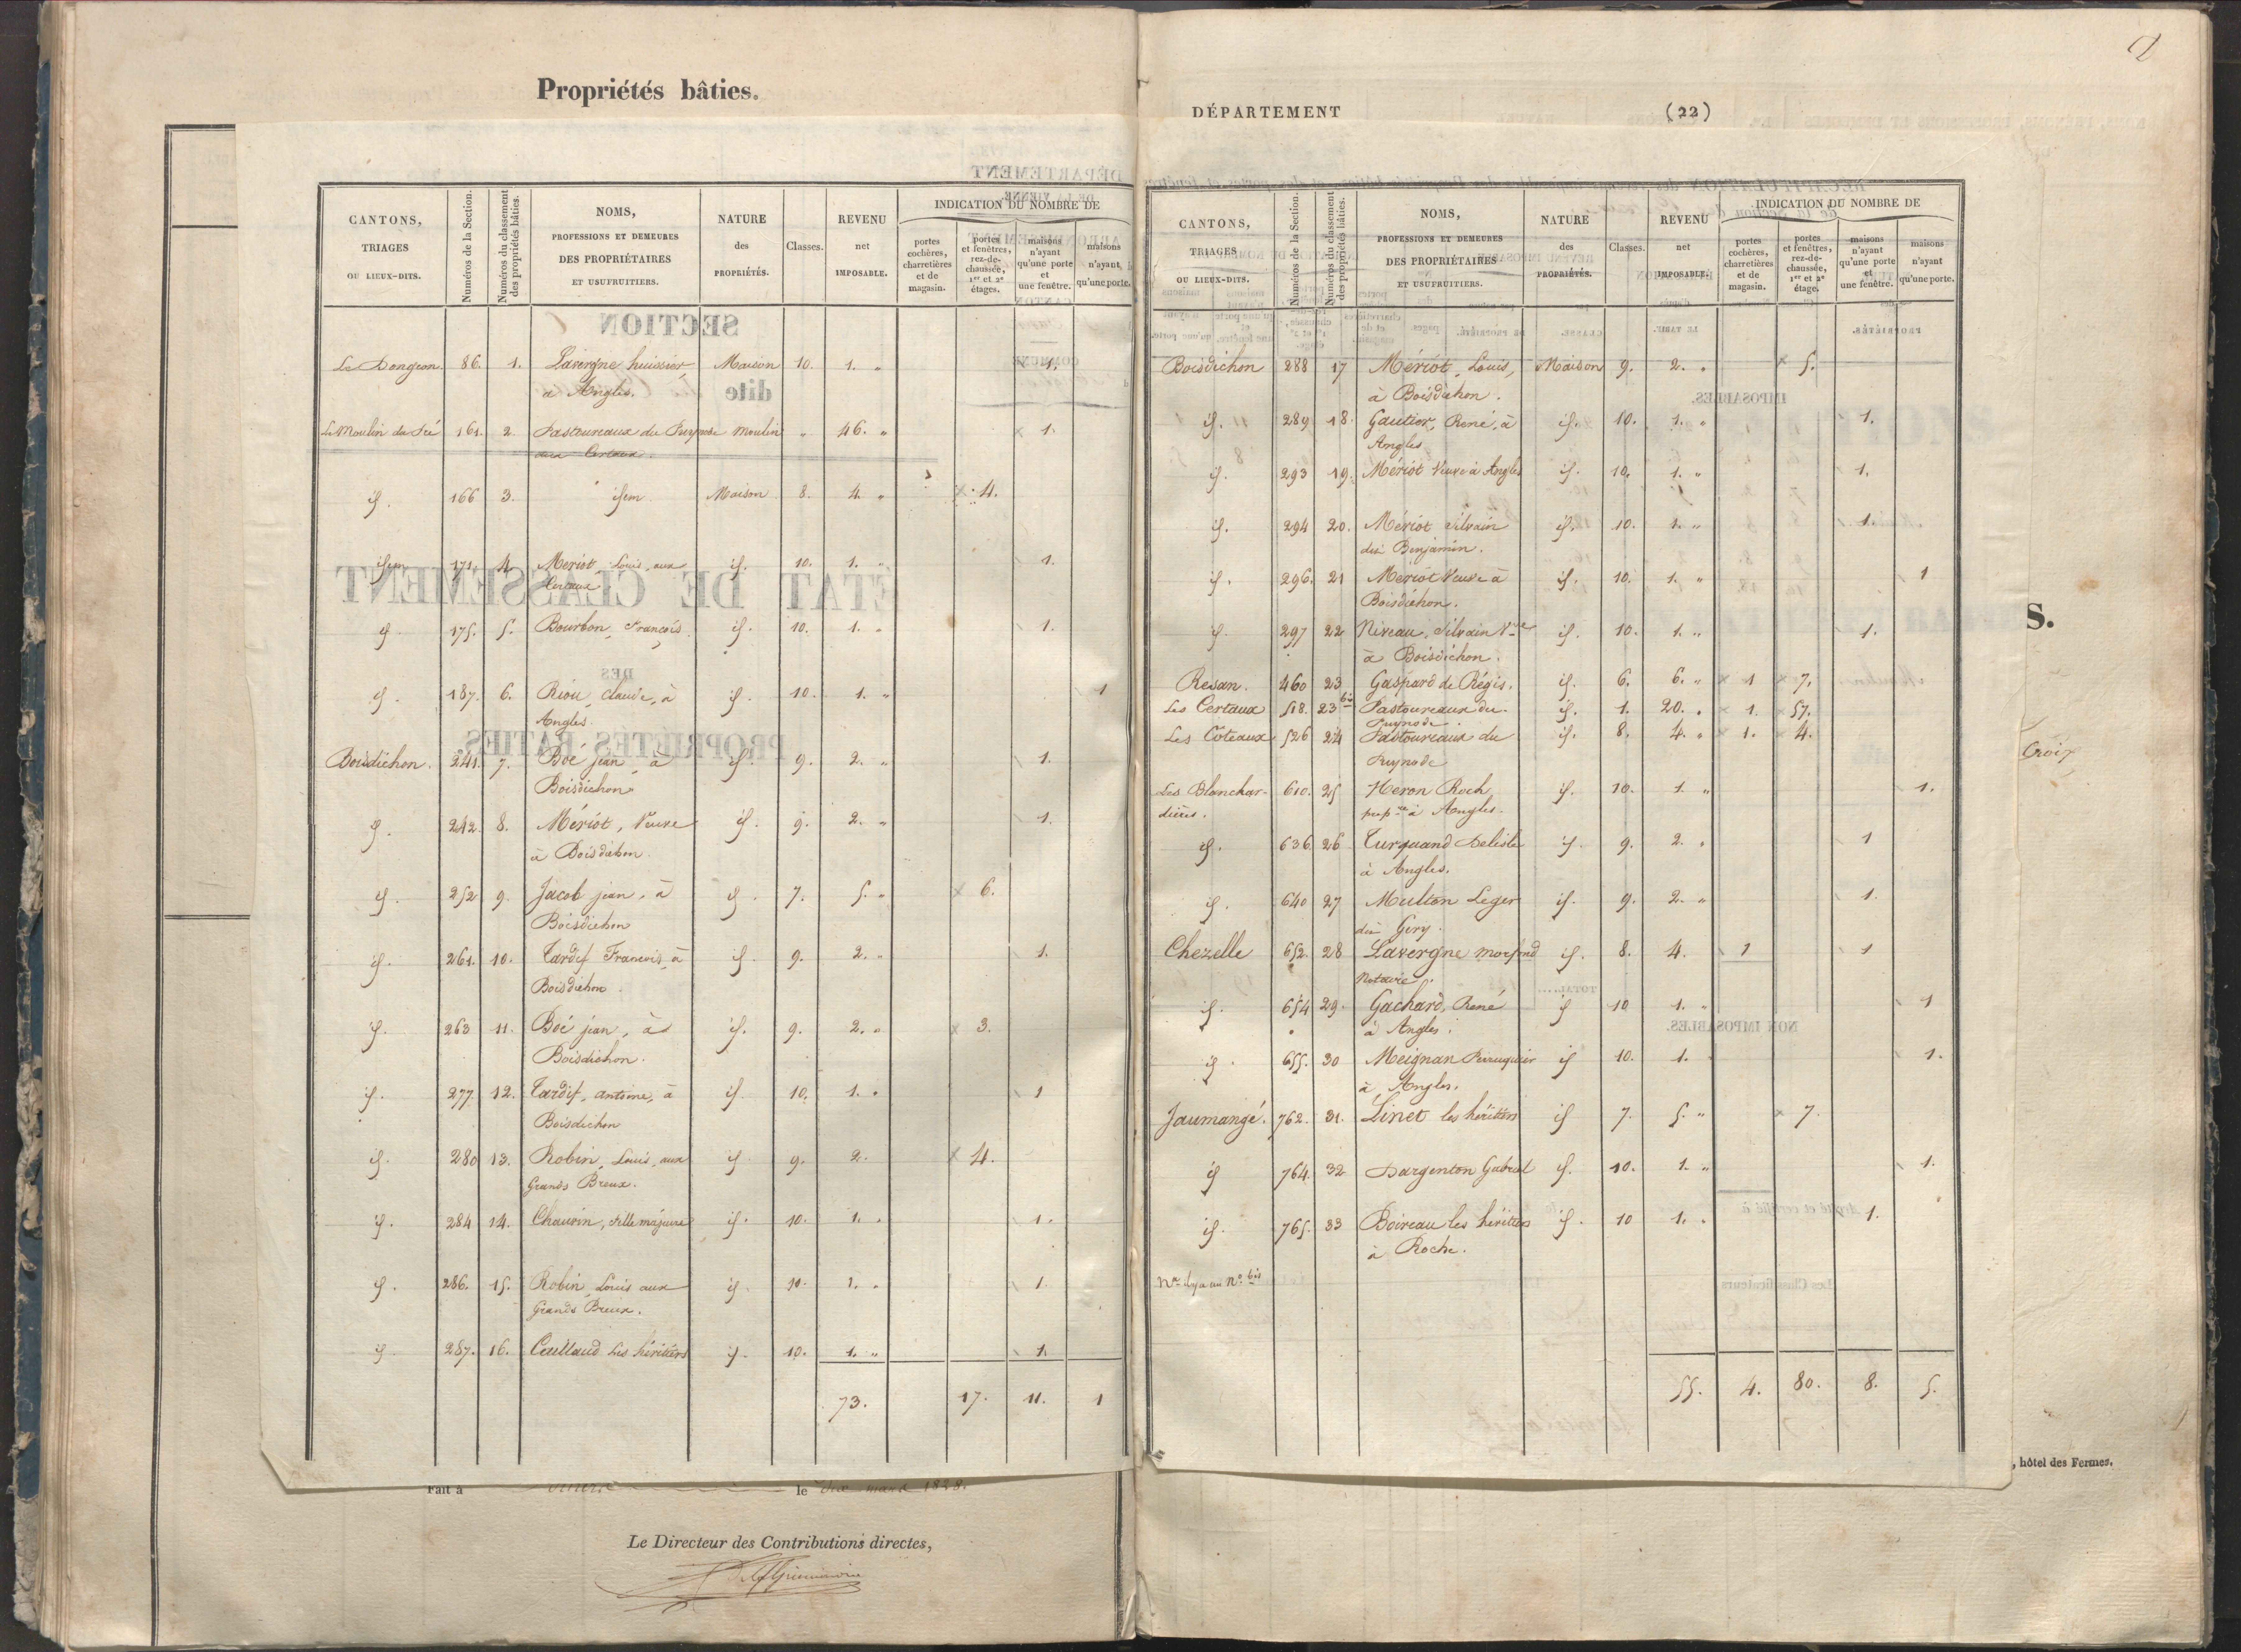 Propriétés bâties.
CANTONS, TRIAGES OU LIEUX-DITS. | Numéros de la Section. | Numéros du classement des propriétés bâties. | NOMS, PROFESSIONS ET DEMEURES DES PROPRIÉTAIRES ET USUFRUITIERS. | NATURE des PROPRIÉTÉS. | Classes. | REVENU net IMPOSABLE. | INDICATION DU NOMBRE DE
portes cochères, charretières et de magasin. | portes et fenêtres, rez-de-chaussée, 1er et 2e étages. | maisons n'ayant qu'une porte et une fenêtre. | maisons n'ayant qu'une porte.
Le Dongeon. 86. 1. Lavergne huissier Maison 10. 1. " 1.
à Angles.
Le Moulin du Pré 161. 2. Pastoureaux du Puynode moulin " 46. " x 1.
id. 166 3. idem Maison 8. 4. " x 4.
idem 171. 4. Meriot, Louis, aux id. 10. 1. " 1.
Certaux
id. 175. 5. Bourbon, François id. 10. 1. " 1.
id. 187. 6. Riou, Claude, à id. 10. 1. " 1
Angles.
Boisdichon. 241. 7. Boé jean, à id. 9. 2. " 1.
Boisdichon
id. 242. 8. Mériot, Veuve id. 9. 2. " 1.
à Boisdichon.
id. 252 9. Jacob jean, à id. 7. 5. " x 6.
Boisdichon
id. 261. 10. Tardif Francois, à id. 9. 2. " 1.
Boisdichon.
id. 263 11. Boé jean, à id. 9. 2. " x 3.
Boisdichon.
id. 277. 12. Tardif, antoine, à id. 10. 1. " 1
Boisdichon
id. 280 13. Robin, Louis, aux id. 9. 2. x 4.
Grands Breux.
id. 284 14. Chauvin, fille majeure id. 10. 1. " 1.
id. 286. 15. Robin, Louis aux id. 10. 1. " 1.
Grands Breux.
id. 287. 16. Cuillaud Les héritiers id. 10. 1. " 1.
73. 17. 11. 1
Fait à le dix mars 1828.
Le Directeur des Contributions directes,
DÉPARTEMENT (22)
CANTONS, TRIAGES OU LIEUX-DITS. | Numéros de la Section. | Numéros du classement des propriétés bâties. | NOMS, PROFESSIONS ET DEMEURES DES PROPRIÉTAIRES ET USUFRUITIERS. | NATURE des PROPRIÉTÉS. | Classes. | REVENU net IMPOSABLE. | INDICATION DU NOMBRE DE
portes cochères, charretières et de magasin. | portes et fenêtres, rez-de-chaussée, 1er et 2e étage. | maisons n'ayant qu'une porte et une fenêtre. | maisons n'ayant qu'une porte.
Boisdichon 288 17 Mériot, Louis, Maison 9. 2. " x 5.
à Boisdichon.
id. 289 18. Gautier, René, à id. 10. 1. " 1.
Angles
id. 293 19. Mériot Veuve à Angles id. 10. 1. " 1.
id. 294 20. Mériot Silvain id. 10. 1. " 1.
dit Benjamin.
id. 296. 21 Mériot Veuve à id. 10. 1. " 1
Boisdichon.
id. 297 22 Niveau, Silvain Vve id. 10. 1. " 1.
à Boisdichon.
Resan. 460 23 Gaspard de Régis. id. 6. 6. " x 1 x 7.
Les Certaux 518. 23 bis Pastoureaux du id. 1. 20. " x 1. x 57.
Puynode.
Les Coteaux 526 24 Pastoureaux du id. 8. 4. " x 1. x 4.
Puynode
Les Blanchar- 610. 25 Heron Roch id. 10. 1. " 1.
dières. prop.re à Angles.
id. 636 26 Turquand Delisle id. 9. 2. " 1
à Angles.
id. 640 27 Multon Leger id. 9. 2. " 1.
dit Gery.
Chezelle 652. 28 Lavergne morfond id. 8. 4. 1 1
Notaire.
id. 654 29. Gachard, René id 10 1. " 1
à Angles.
id. 655. 30 Meignan Perruquier id 10. 1. 1.
à Angles.
Jaumangé. 762. 31. Linet les héritiers id 7. 5. " x 7.
id 764. 32 Dargenton Gabriel id. 10. 1. " 1.
id. 765. 33 Boireau les héritiers id. 10 1. " 1.
à Roche.
Na il y a un No. bis
55. 4. 80. 8. 5.
S.
Croix
, hôtel des Fermes.